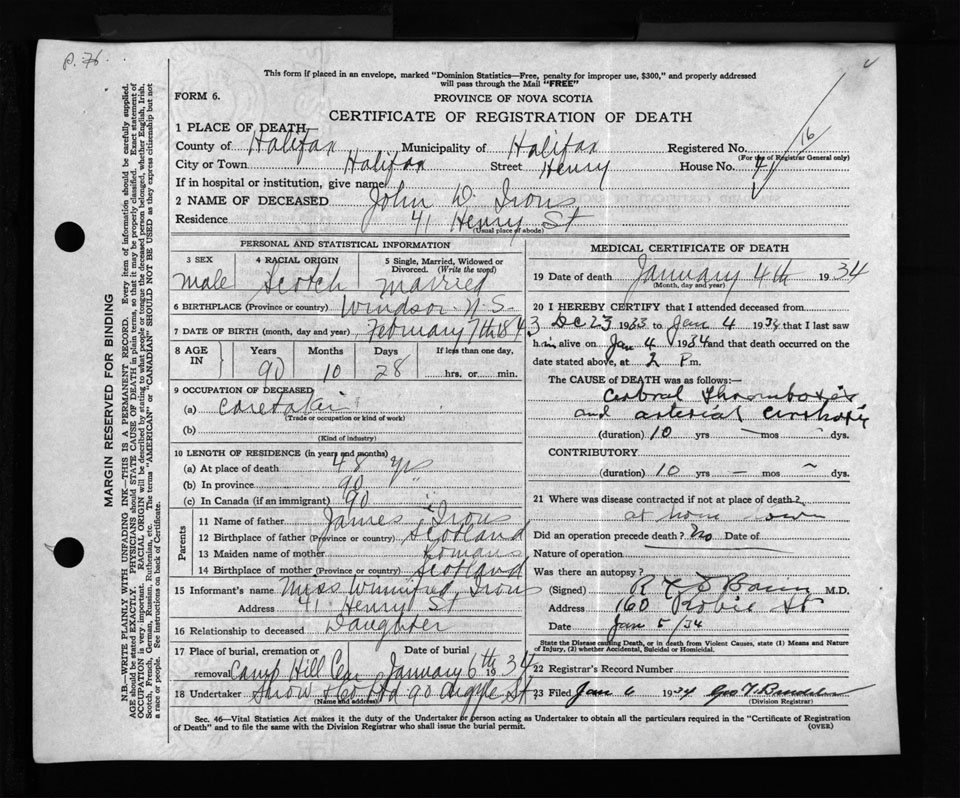 p. 76.
This form if placed in an envelope, marked "Dominion Statistics—Free, penalty for improper use, $300," and properly addressed
will pass through the Mail "FREE"
FORM 6.
PROVINCE OF NOVA SCOTIA
CERTIFICATE OF REGISTRATION OF DEATH
16
1 PLACE OF DEATH—
County of Halifax Municipality of Halifax Registered No.
(For use of Registrar General only)
City or Town Halifax Street Henry House No. 41
If in hospital or institution, give name
2 NAME OF DECEASED John W. Irons
Residence 41 Henry St
(Usual place of abode)
PERSONAL AND STATISTICAL INFORMATION
3 SEX 4 RACIAL ORIGIN 5 Single, Married, Widowed or
Divorced. (Write the word)
male Scotch married
6 BIRTHPLACE (Province or country) Windsor N.S.
7 DATE OF BIRTH (month, day and year) February 7th 1843
8 AGE IN Years Months Days If less than one day,
90 10 28 hrs. or min.
9 OCCUPATION OF DECEASED
(a) caretaker
(Trade or occupation or kind of work)
(b)
(Kind of industry)
10 LENGTH OF RESIDENCE (in years and months)
(a) At place of death 48 yrs
(b) In province 90 "
(c) In Canada (if an immigrant) 90 "
Parents
11 Name of father James Irons
12 Birthplace of father (Province or country) Scotland
13 Maiden name of mother Romans
14 Birthplace of mother (Province or country) Scotland
15 Informant's name Miss Winnifred Irons
Address 41 Henry St
16 Relationship to deceased Daughter
17 Place of burial, cremation or Date of burial
removal Camp Hill Cem January 6th 1934
18 Undertaker Snow & Co Ltd 90 Argyle St
(Name and address)
MEDICAL CERTIFICATE OF DEATH
19 Date of death January 4th 1934
(Month, day and year)
20 I HEREBY CERTIFY that I attended deceased from
Dec 23 1933 to Jan 4 1934 that I last saw
h im alive on Jan 4 1934 and that death occurred on the
date stated above, at 2 P m.
The CAUSE OF DEATH was as follows:—
Cerebral Thrombosis
and arterial
(duration) 10 yrs — mos dys.
CONTRIBUTORY
(duration) 10 yrs — mos dys.
21 Where was disease contracted if not at place of death?
at home town
Did an operation precede death? no Date of
Nature of operation
Was there an autopsy?
(Signed) M.D.
Address 160 Robie St
Date Jan 5/34
State the Disease causing Death, or in death from Violent Causes, state (1) Means and Nature
of Injury, (2) whether Accidental, Suicidal or Homicidal.
22 Registrar's Record Number
23 Filed Jan 6 1934 Geo
(Division Registrar)
Sec. 46—Vital Statistics Act makes it the duty of the Undertaker or person acting as Undertaker to obtain all the particulars required in the "Certificate of Registration
of Death" and to file the same with the Division Registrar who shall issue the burial permit.
(OVER)
MARGIN RESERVED FOR BINDING
N.B.—WRITE PLAINLY WITH UNFADING INK—THIS IS A PERMANENT RECORD. Every item of information should be carefully supplied.
AGE should be stated EXACTLY. PHYSICIANS should STATE CAUSE OF DEATH in plain terms, so that it may be properly classified. Exact statement of
OCCUPATION is very important. RACIAL ORIGIN will be described by stating to what people or tongue the deceased person belonged, whether English, Irish,
Scotch, French, German, Russian, Ruthenian, etc. The terms "AMERICAN" or "CANADIAN" SHOULD NOT BE USED as they express citizenship but not
a race or people. See instructions on back of Certificate.